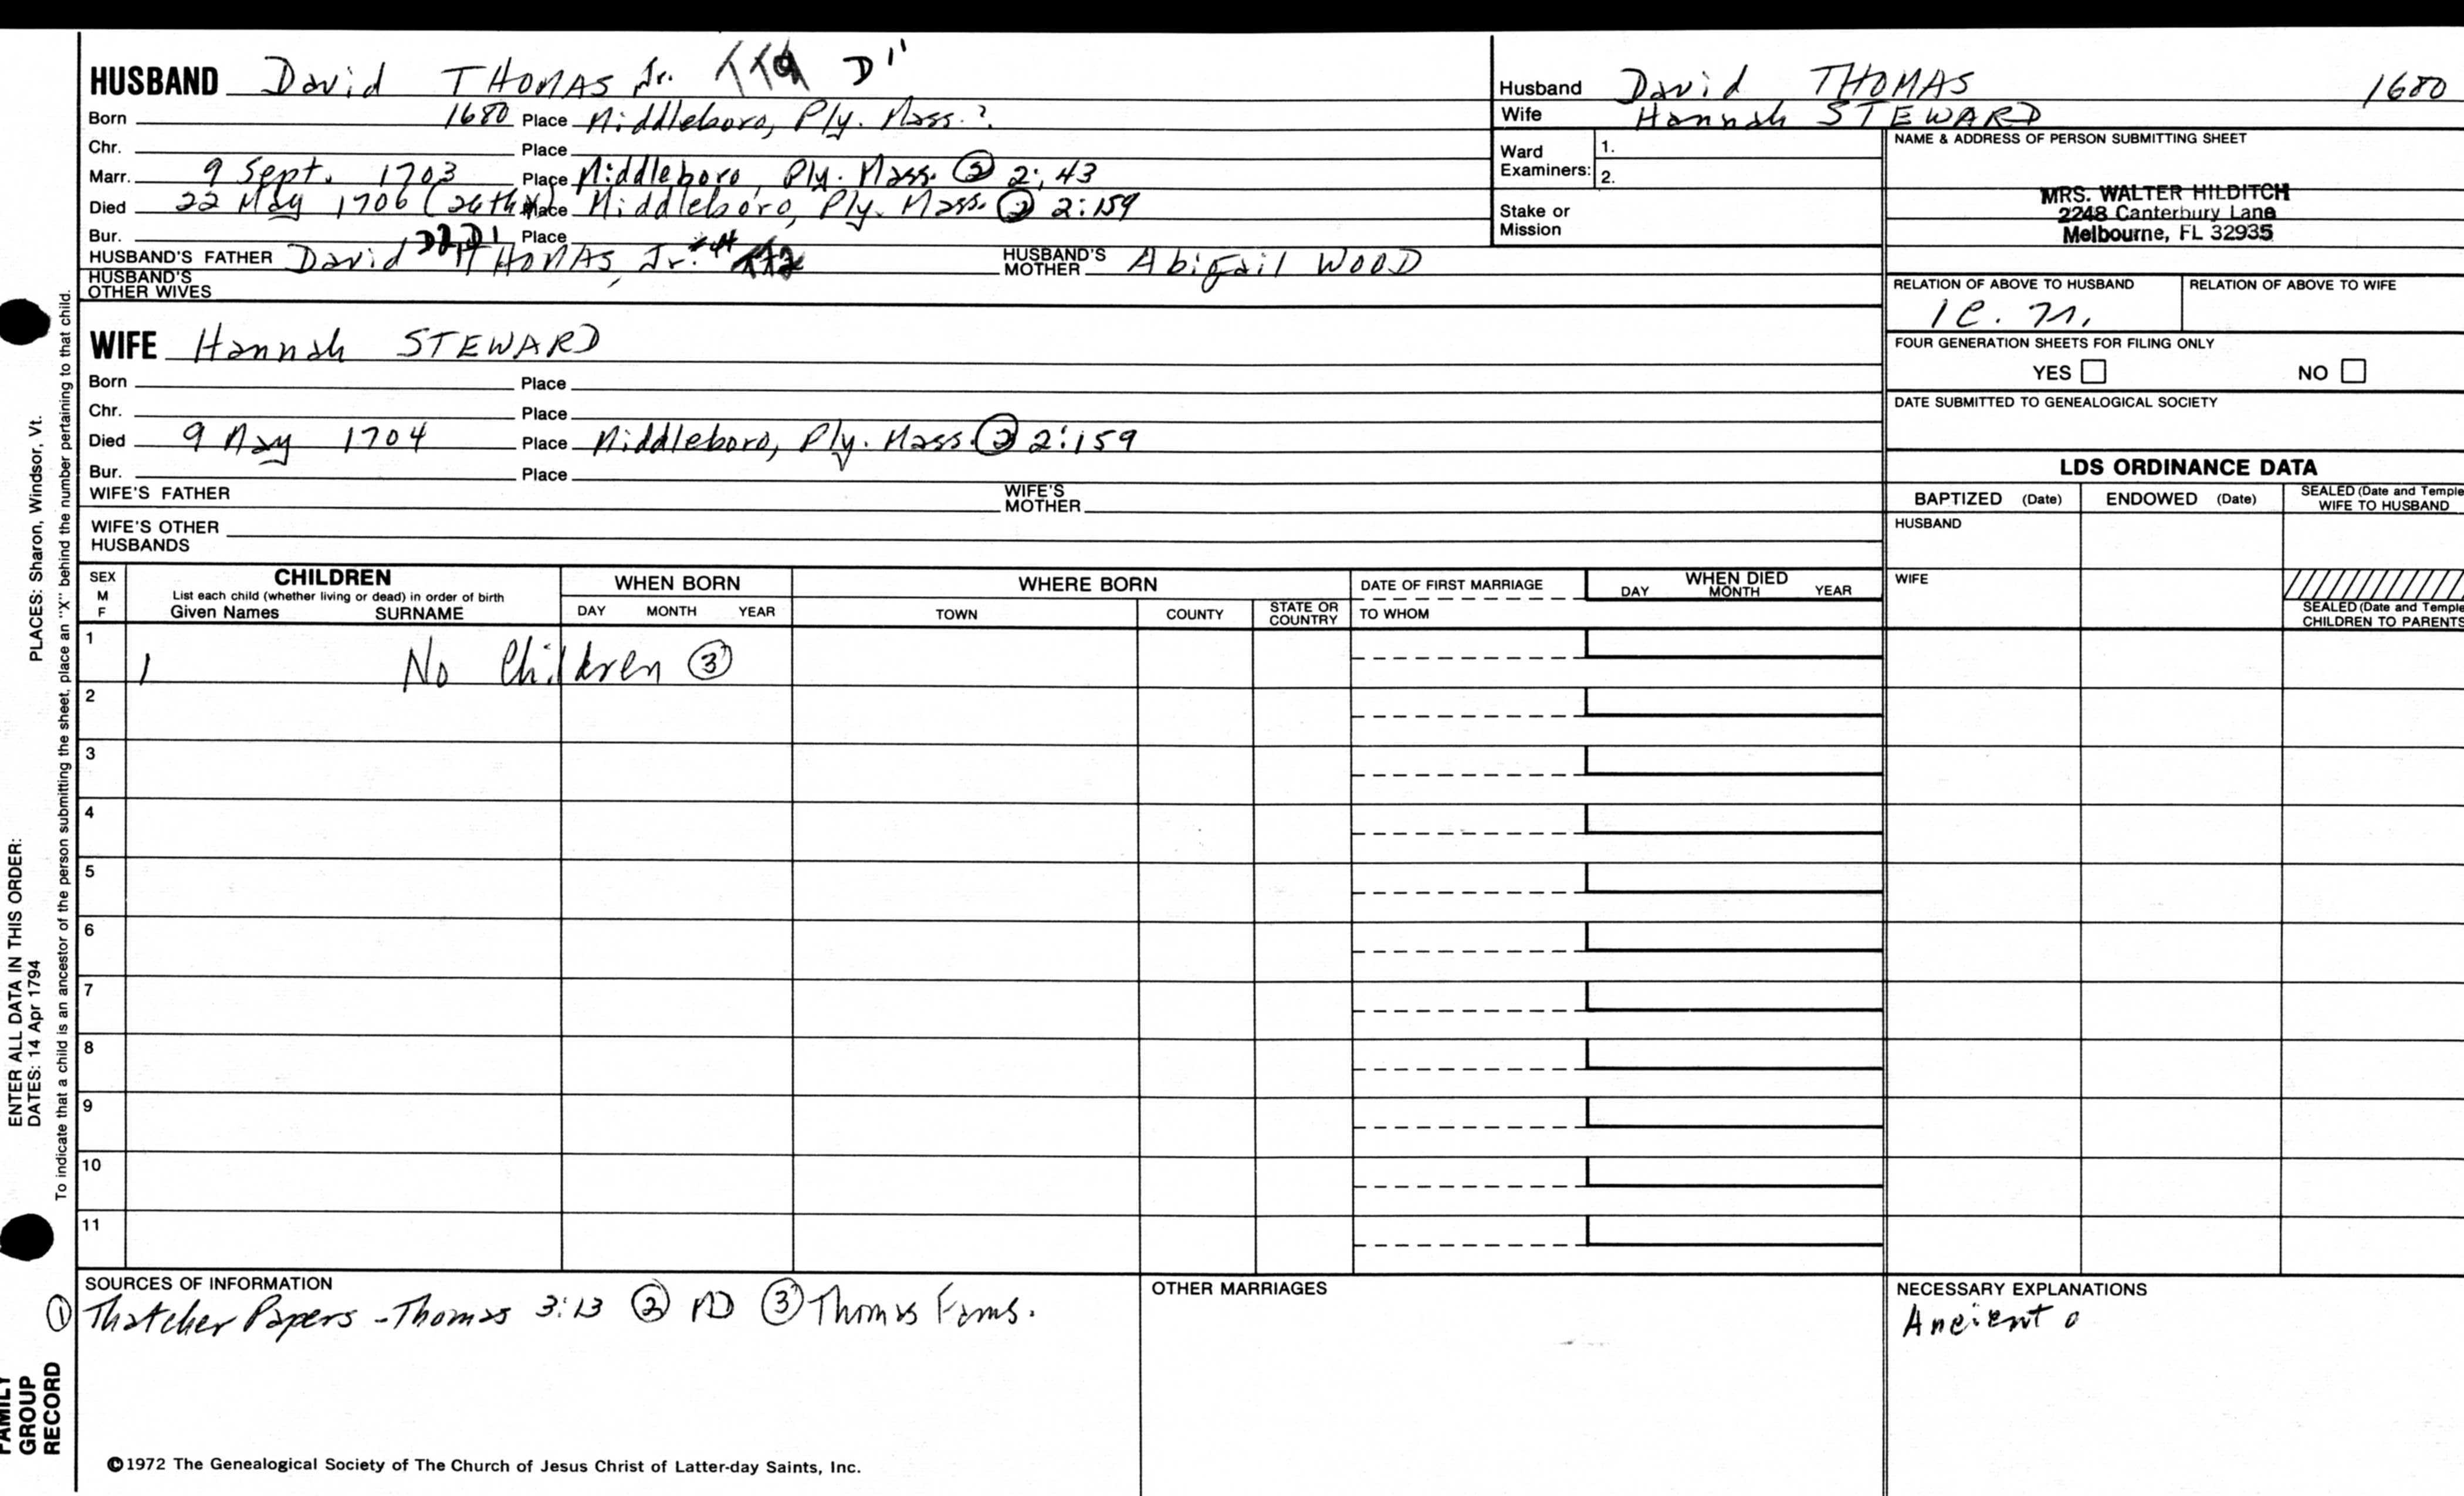 HUSBAND David THOMAS Jr. D1
Born 1680 Place Middleboro, Ply. Mass. ?
Chr. Place
Marr. 9 Sept. 1703 Place Middleboro, Ply. Mass. ② 2:43
Died 22 May 1706 (26th) Place Middleboro, Ply. Mass. ② 2:159
Bur. Place
HUSBAND'S FATHER David THOMAS, Jr. HUSBAND'S MOTHER Abigail WOOD
HUSBAND'S OTHER WIVES
WIFE Hannah STEWARD
Born Place
Chr. Place
Died 9 May 1704 Place Middleboro, Ply. Mass. ② 2:159
Bur. Place
WIFE'S FATHER WIFE'S MOTHER
WIFE'S OTHER HUSBANDS
Husband David THOMAS 1680
Wife Hannah STEWARD
Ward Examiners: 1.
2.
Stake or Mission
NAME & ADDRESS OF PERSON SUBMITTING SHEET
MRS. WALTER HILDITCH
2248 Canterbury Lane
Melbourne, FL 32935
RELATION OF ABOVE TO HUSBAND RELATION OF ABOVE TO WIFE
FOUR GENERATION SHEETS FOR FILING ONLY
YES NO
DATE SUBMITTED TO GENEALOGICAL SOCIETY
LDS ORDINANCE DATA
BAPTIZED (Date) ENDOWED (Date) SEALED (Date and Temple WIFE TO HUSBAND
HUSBAND
WIFE
SEALED (Date and Temple
CHILDREN TO PARENTS
SEX M F
CHILDREN
List each child (whether living or dead) in order of birth
Given Names SURNAME
WHEN BORN
DAY MONTH YEAR
WHERE BORN
TOWN COUNTY STATE OR COUNTRY
DATE OF FIRST MARRIAGE
TO WHOM
WHEN DIED
DAY MONTH YEAR
1 No Children ③
2
3
4
5
6
7
8
9
10
11
SOURCES OF INFORMATION
① Thatcher Papers - Thomas 3:13 ② MD ③ Thomas Fams.
OTHER MARRIAGES
NECESSARY EXPLANATIONS
Ancient
©1972 The Genealogical Society of The Church of Jesus Christ of Latter-day Saints, Inc.
ENTER ALL DATA IN THIS ORDER:
DATES: 14 Apr 1794 PLACES: Sharon, Windsor, Vt.
To indicate that a child is an ancestor of the person submitting the sheet, place an "X" behind the number pertaining to that child.
FAMILY
GROUP
RECORD